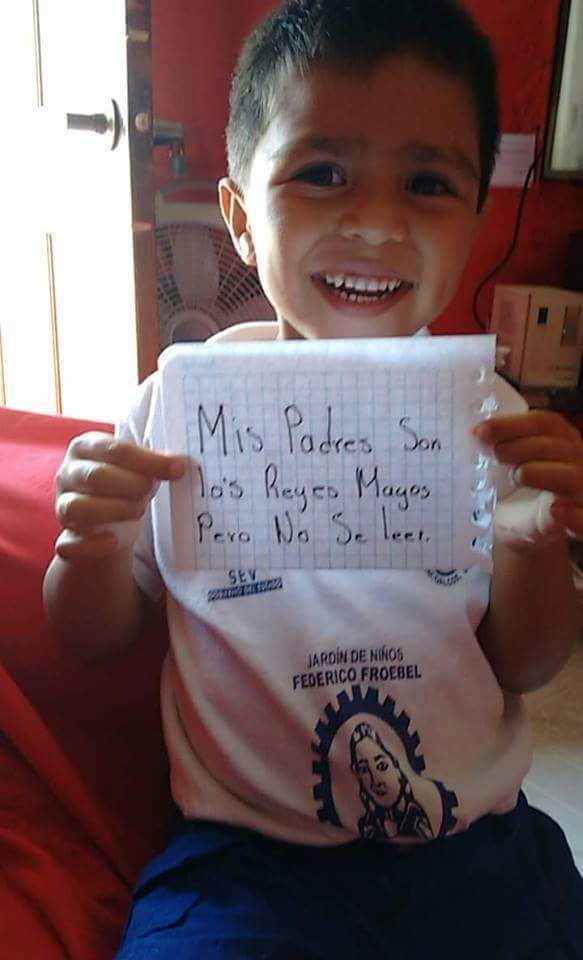 Mis Padres Son
los Reyes Magos
Pero No Se leer.
SEV
GOBIERNO DEL ESTADO
JARDÍN DE NIÑOS
FEDERICO FROEBEL